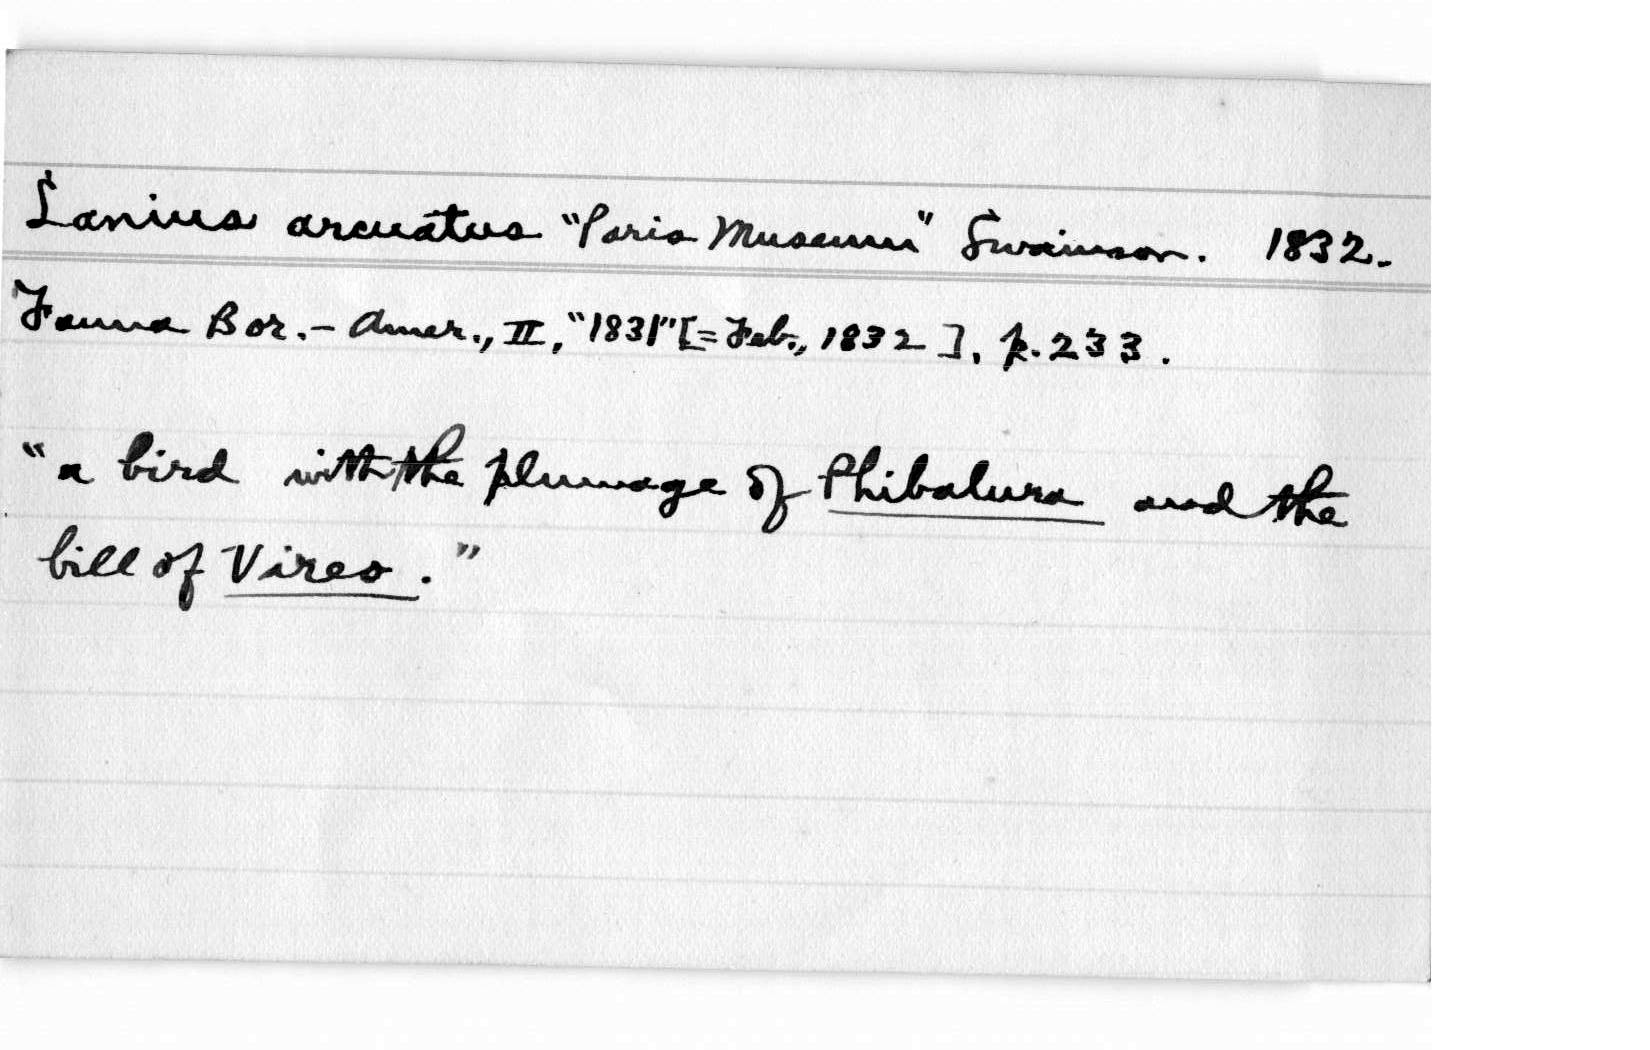 Lanius arcuatus "Paris Museum" Swainson. 1832.
Fauna Bor.-Amer., II, "1831" [=Feb., 1832], p. 233.
"a bird with the plumage of Phibalura and the
bill of Vireo."